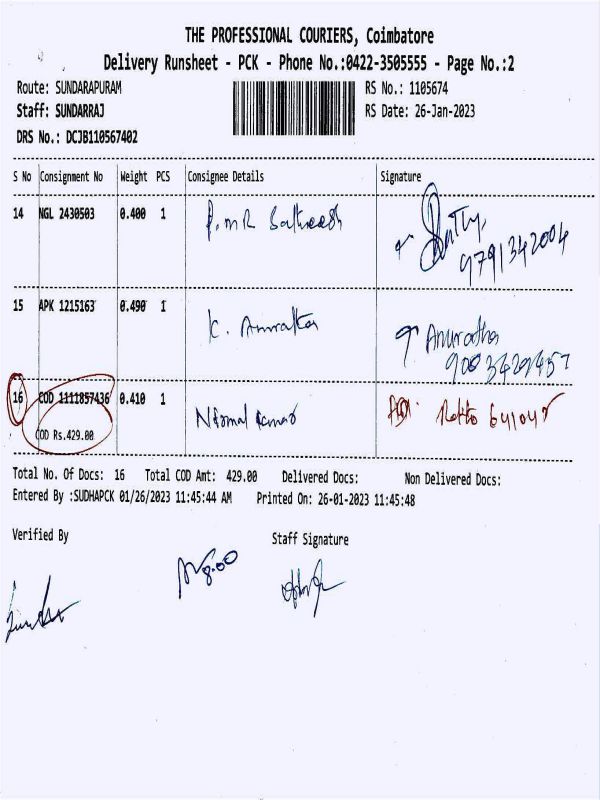 THE PROFESSIONAL COURIERS, Coimbatore
Delivery Runsheet - PCK - Phone No.:0422-3505555 - Page No.:2
Route: SUNDARAPURAM RS No.: 1105674
Staff: SUNDARRAJ RS Date: 26-Jan-2023
DRS No.: DCJB110567402
S No Consignment No Weight PCS Consignee Details Signature
14 NGL 2430503 0.400 1 P.M.R
9791342004
15 APK 1215163 0.490 1 K. Anuratha Anuratha
9003429457
16 COD 1111857436 0.410 1 Nirmal Kumar 641045
COD Rs.429.00
Total No. Of Docs: 16 Total COD Amt: 429.00 Delivered Docs: Non Delivered Docs:
Entered By :SUDHAPCK 01/26/2023 11:45:44 AM Printed On: 26-01-2023 11:45:48
Verified By Staff Signature